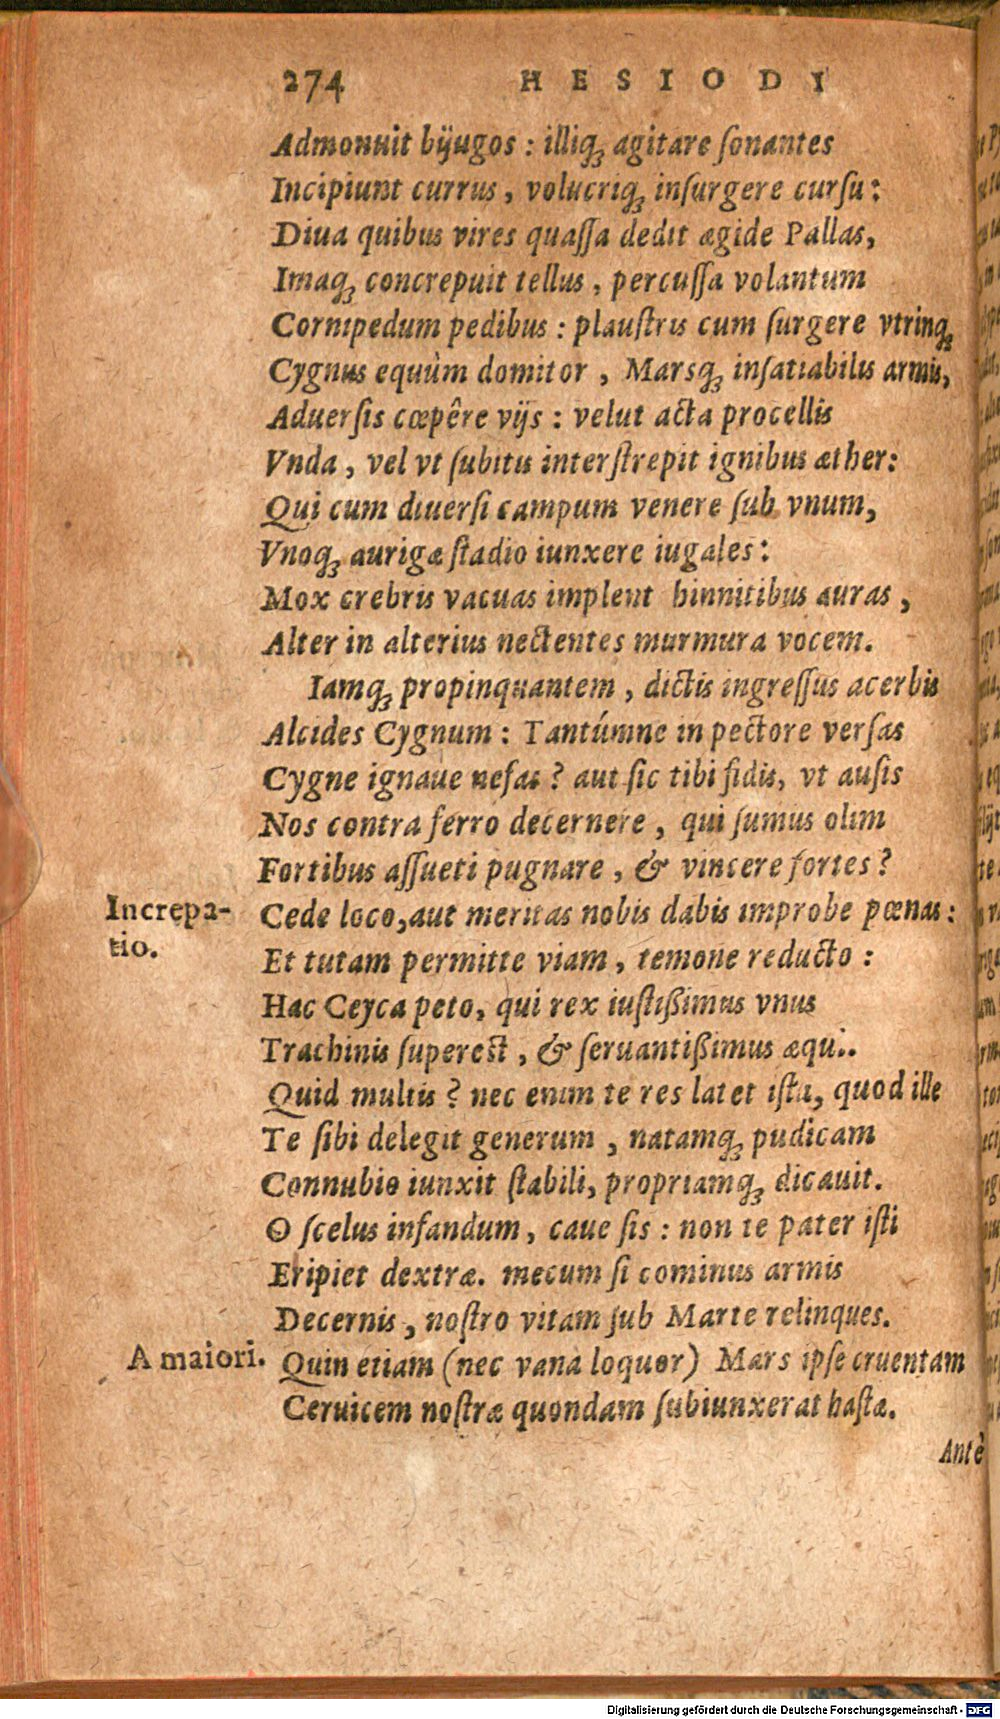 274 HESIODI
Admonuit bijugos : illiqꝫ agitare ſonantes
Incipiunt currus, volucriqꝫ inſurgere curſu:
Diua quibus vires quaſſa dedit ægide Pallas,
Imaqꝫ concrepuit tellus, percuſſa volantum
Cornipedum pedibus : plauſtris cum ſurgere vtrinqꝫ
Cygnus equûm domitor, Marsqꝫ inſatiabilis armis,
Aduerſis cœpêre vijs : velut acta procellis
Vnda, vel vt ſubitis interſtrepit ignibus æther:
Qui cum diuerſi campum venere ſub vnum,
Vnoqꝫ aurigæ ſtadio iunxere iugales:
Mox crebris vacuas implent hinnitibus auras,
Alter in alterius nectentes murmura vocem.
Iamqꝫ propinquantem, dictis ingreſſus acerbis
Alcides Cygnum: Tantúmne in pectore verſas
Cygne ignaue nefas? aut ſic tibi fidis, vt auſis
Nos contra ferro decernere, qui ſumus olim
Fortibus aſſueti pugnare, & vincere fortes?
Increpa-
tio.
Cede loco, aut meritas nobis dabis improbe pœnas:
Et tutam permitte viam, temone reducto:
Hac Ceyca peto, qui rex iuſtißimus vnus
Trachinis ſupereſt, & ſeruantißimus æqui.
Quid multis? nec enim te res latet iſta, quod ille
Te ſibi delegit generum, natamqꝫ pudicam
Connubio iunxit ſtabili, propriamqꝫ dicauit.
O ſcelus infandum, caue ſis: non te pater iſti
Eripiet dextræ. mecum ſi cominus armis
Decernis, noſtro vitam ſub Marte relinques.
A maiori. Quin etiam (nec vana loquor) Mars ipſe cruentam
Ceruicem noſtræ quondam ſubiunxerat haſtæ.
Antè
Digitalisierung gefördert durch die Deutsche Forschungsgemeinschaft - DFG